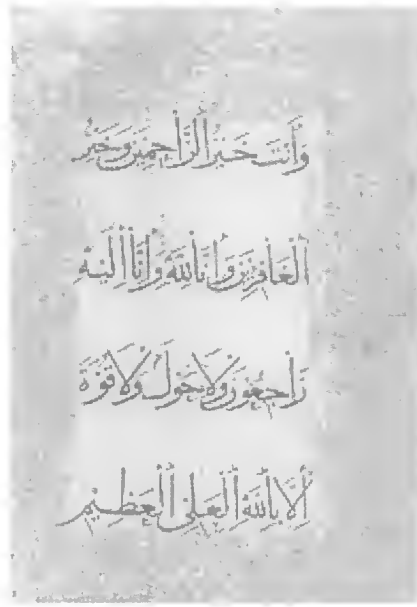 وَأَنْتَ خَيْرُ الرَّاحِمِينَ وَخَيْرُ
الْغَافِرِينَ وَإِنَّا لِلَّهِ وَإِنَّا إِلَيْهِ
رَاجِعُونَ وَلَا حَوْلَ وَلَا قُوَّةَ
إِلَّا بِاللَّهِ الْعَلِيِّ الْعَظِيمِ